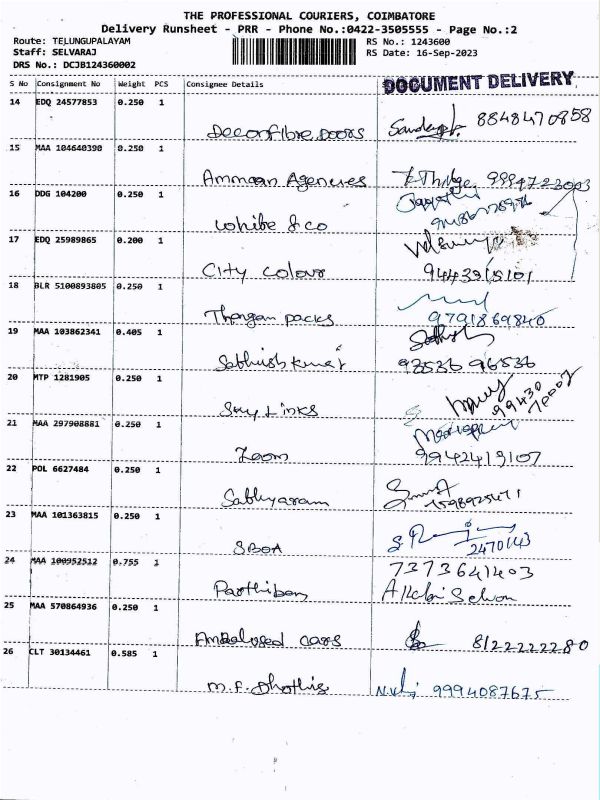 THE PROFESSIONAL COURIERS, COIMBATORE
Delivery Runsheet - PRR - Phone No.:0422-3505555 - Page No.:2
Route: TELUNGUPALAYAM RS No.: 1243600
Staff: SELVARAJ RS Date: 16-Sep-2023
DRS No.: DCJB124360002
S No Consignment No Weight PCS Consignee Details DOCUMENT DELIVERY
14 EDQ 24577853 0.250 1
Deconfibre doors 8848470858
15 MAA 104640390 0.250 1
Ammaan Agencies 9994723003
16 DDG 104200 0.250 1
white & co
17 EDQ 25989865 0.200 1
City colour 9443915101
18 BLR 5100893805 0.250 1
Thangam packs 9791869840
19 MAA 103862341 0.405 1
Sathish kumar 93536 96536
20 MTP 1281905 0.250 1
Sky Links 99430 70007
21 MAA 297908881 0.250 1
Zoom 9942419107
22 POL 6627484 0.250 1
Sathyaram
23 MAA 101363815 0.250 1
SBOA 2470143
24 MAA 100952512 0.755 1
7373641403
Parthiban
25 MAA 570864936 0.250 1
cars 8122222280
26 CLT 30134461 0.585 1
M.F. 9994087675